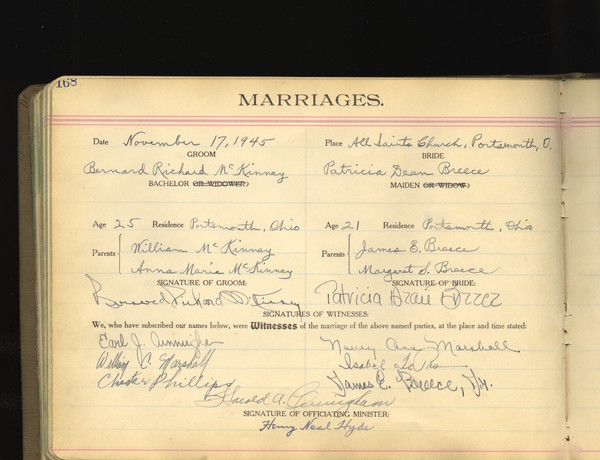 168
MARRIAGES.
Date November 17, 1945 Place All Saints Church, Portsmouth, O.
GROOM BRIDE
Bernard Richard McKinney Patricia Dean Breece
BACHELOR OR WIDOWER) MAIDEN OR WIDOW)
Age 25 Residence Portsmouth, Ohio Age 21 Residence Portsmouth, Ohio
Parents { William McKinney Parents { James E. Breece
Anna Marie McKinney Margaret S. Breece
SIGNATURE OF GROOM: SIGNATURE OF BRIDE:
Bernard Richard McKinney Patricia Dean Breece
SIGNATURES OF WITNESSES:
We, who have subscribed our names below, were Witnesses of the marriage of the above named parties, at the place and time stated:
Earl J. Cunningham Nancy Ann Marshall
William C. Marshall Isabel
Chester Phillips James E. Breece, Jr.
Harold A. Cunningham
SIGNATURE OF OFFICIATING MINISTER:
Henry Neal Hyde